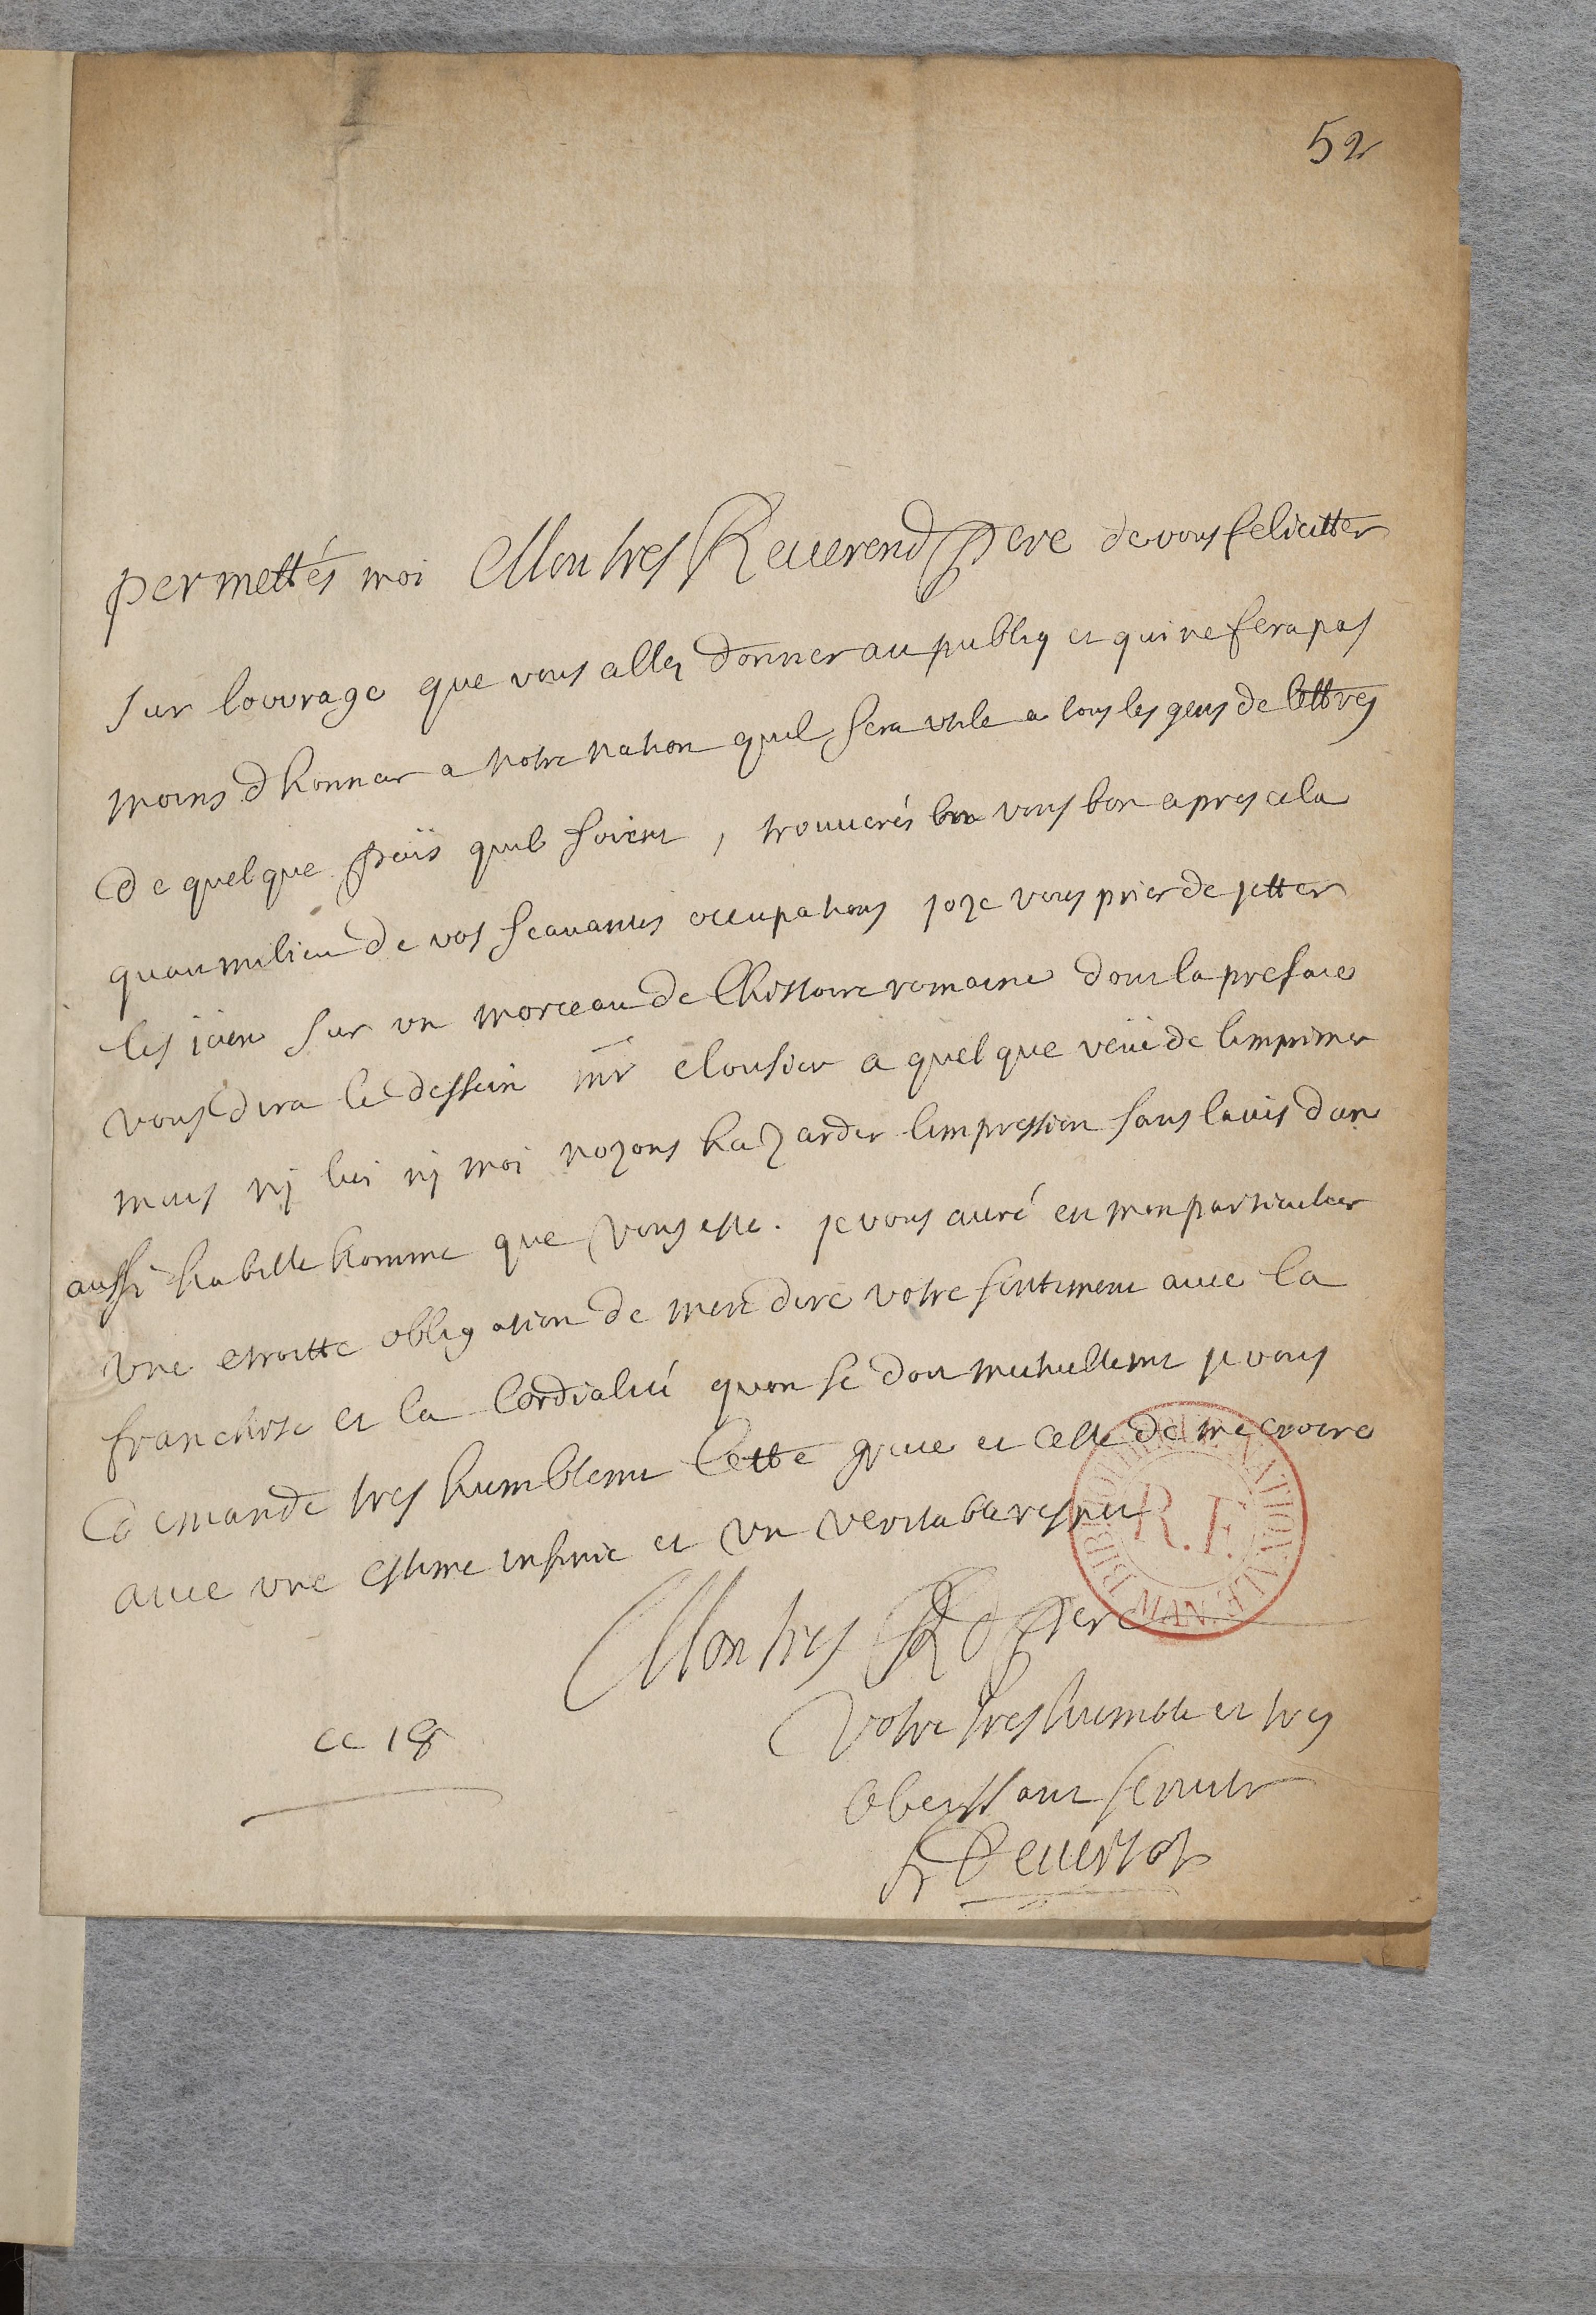 52
permettés moi Mon tres Reuerend Pere de vous felicitter
sur louurage que vous allez donner au publiq et qui ne fera pas
moins dhonneur a notre nation quil sera utile a tous les gens de lettres
de quelque païs quils soient, trouuerés vous bon apres cela
quau milieu de vos scauantes occupations joze vous prier de jetter
les ieux sur un morceau de lhistoire romaine dont la preface
vous dira le dessein mr clousier a quelque veüe de limprimer
mais nj lui nj moi nozons hazarder limpression sans lauis dun
aussi habille homme que vous este. je vous auré en mon particulier
une etroitte obligation de men dire votre sentiment auec la
franchise et la cordialité quon se doit mutuellement je vous
demande tres humblement cette grace et celle de me croire
auec une estime infinie et un veritable respect
Mon tres R Pere
Votre tres humble et tres
obeissant seruitr
fr De uertot
ce 18
BIBLIOTHEQUE NATIONALE MAN
R.F.